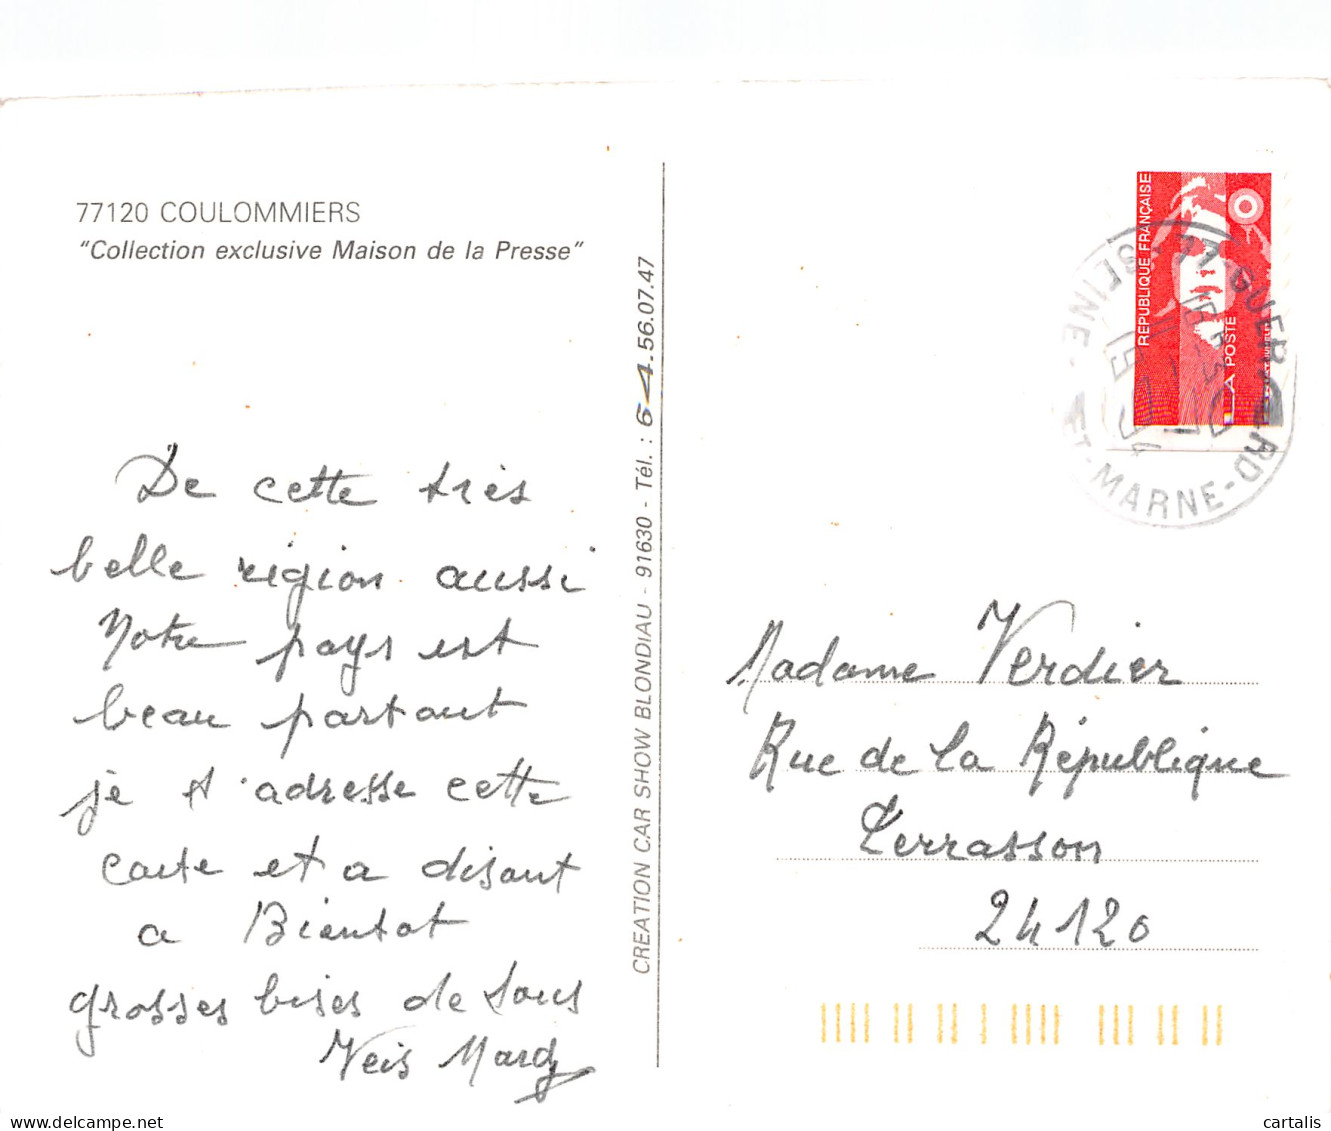 77120 COULOMMIERS
"Collection exclusive Maison de la Presse"
De cette très
belle région aussi
Notre pays est
beau partout
je t'adresse cette
carte et a disant
a Bientot
grosses bises de tous
CREATION CAR SHOW BLONDIAU - 91630 - Tél. : 64.56.07.47
RÉPUBLIQUE FRANÇAISE
LA POSTE
77-GUERARD
SEINE-ET-MARNE
Madame Verdier
Rue de la République
Terrasson
24120
cartalis
delcampe.net